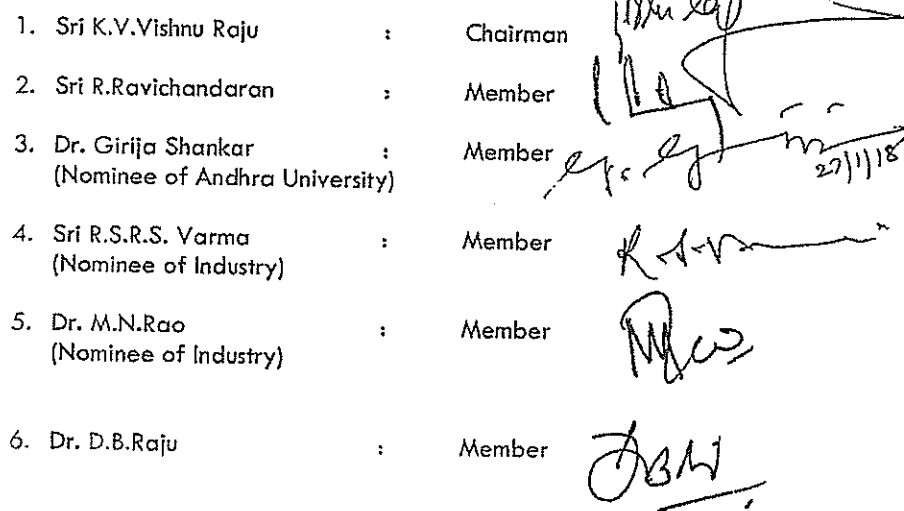 1. Sri K.V.Vishnu Raju : Chairman
2. Sri R.Ravichandaran : Member
3. Dr. Girija Shankar : Member
(Nominee of Andhra University)
27/1/18
4. Sri R.S.R.S. Varma : Member
(Nominee of Industry)
5. Dr. M.N.Rao : Member
(Nominee of Industry)
6. Dr. D.B.Raju : Member